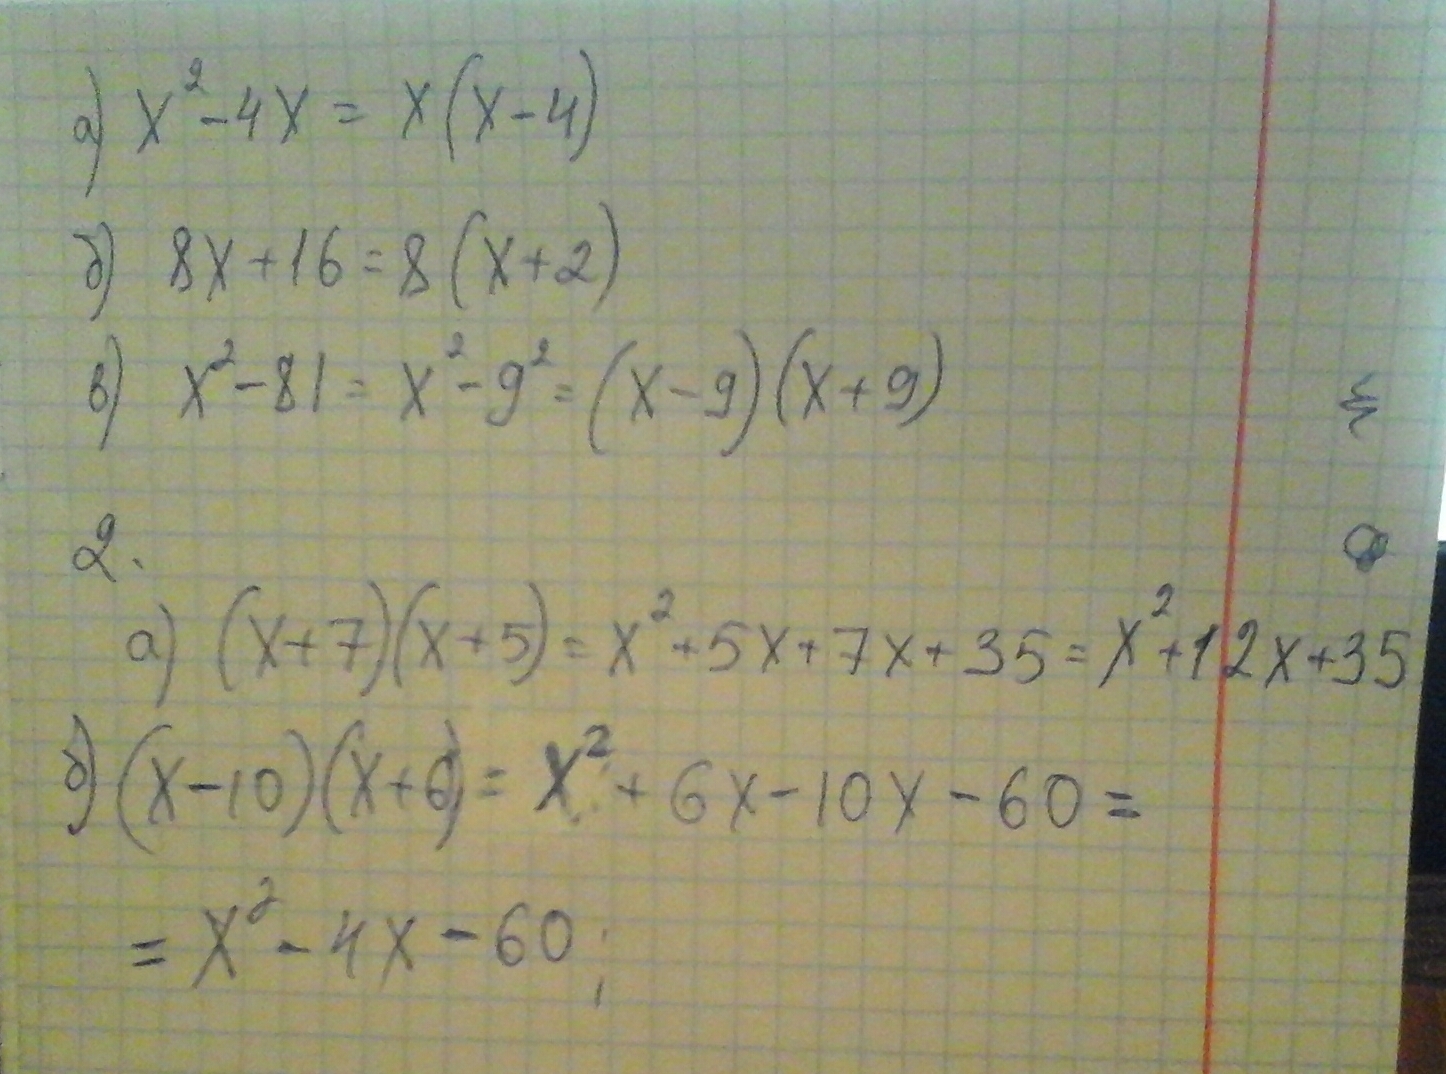 а) x² - 4x = x(x - 4)
б) 8x + 16 = 8(x + 2)
в) x² - 81 = x² - 9² = (x - 9)(x + 9)
2.
а) (x + 7)(x + 5) = x² + 5x + 7x + 35 = x² + 12x + 35
б) (x - 10)(x + 6) = x² + 6x - 10x - 60 =
= x² - 4x - 60;